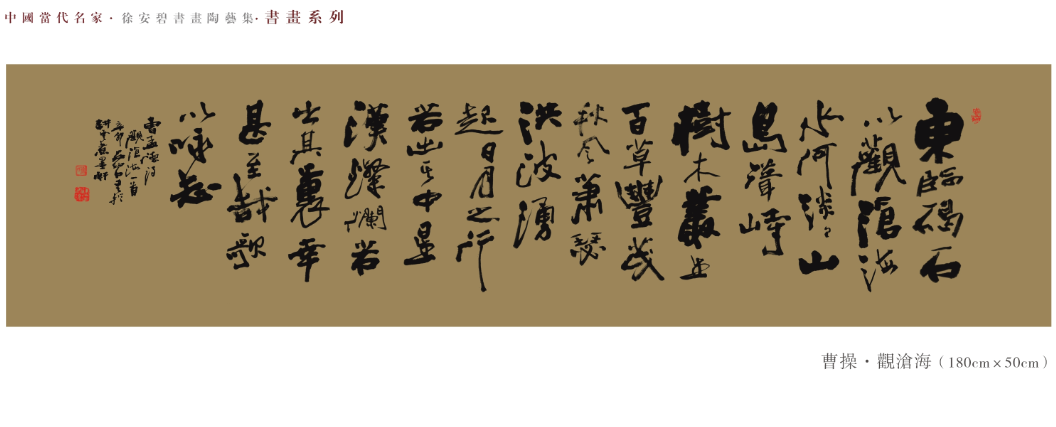 中國當代名家·徐安碧書畫陶藝集·書畫系列
東臨碣石
以觀滄海
水何淡々山
島聳峙
樹木叢生
百草豐茂
秋風蕭瑟
洪波湧
起日月之行
若出其中星
漢燦爛若
出其裏幸
甚至哉歌
以詠志
曹孟德詩
觀滄海一首
辛卯
曹操·觀滄海（180cm×50cm）